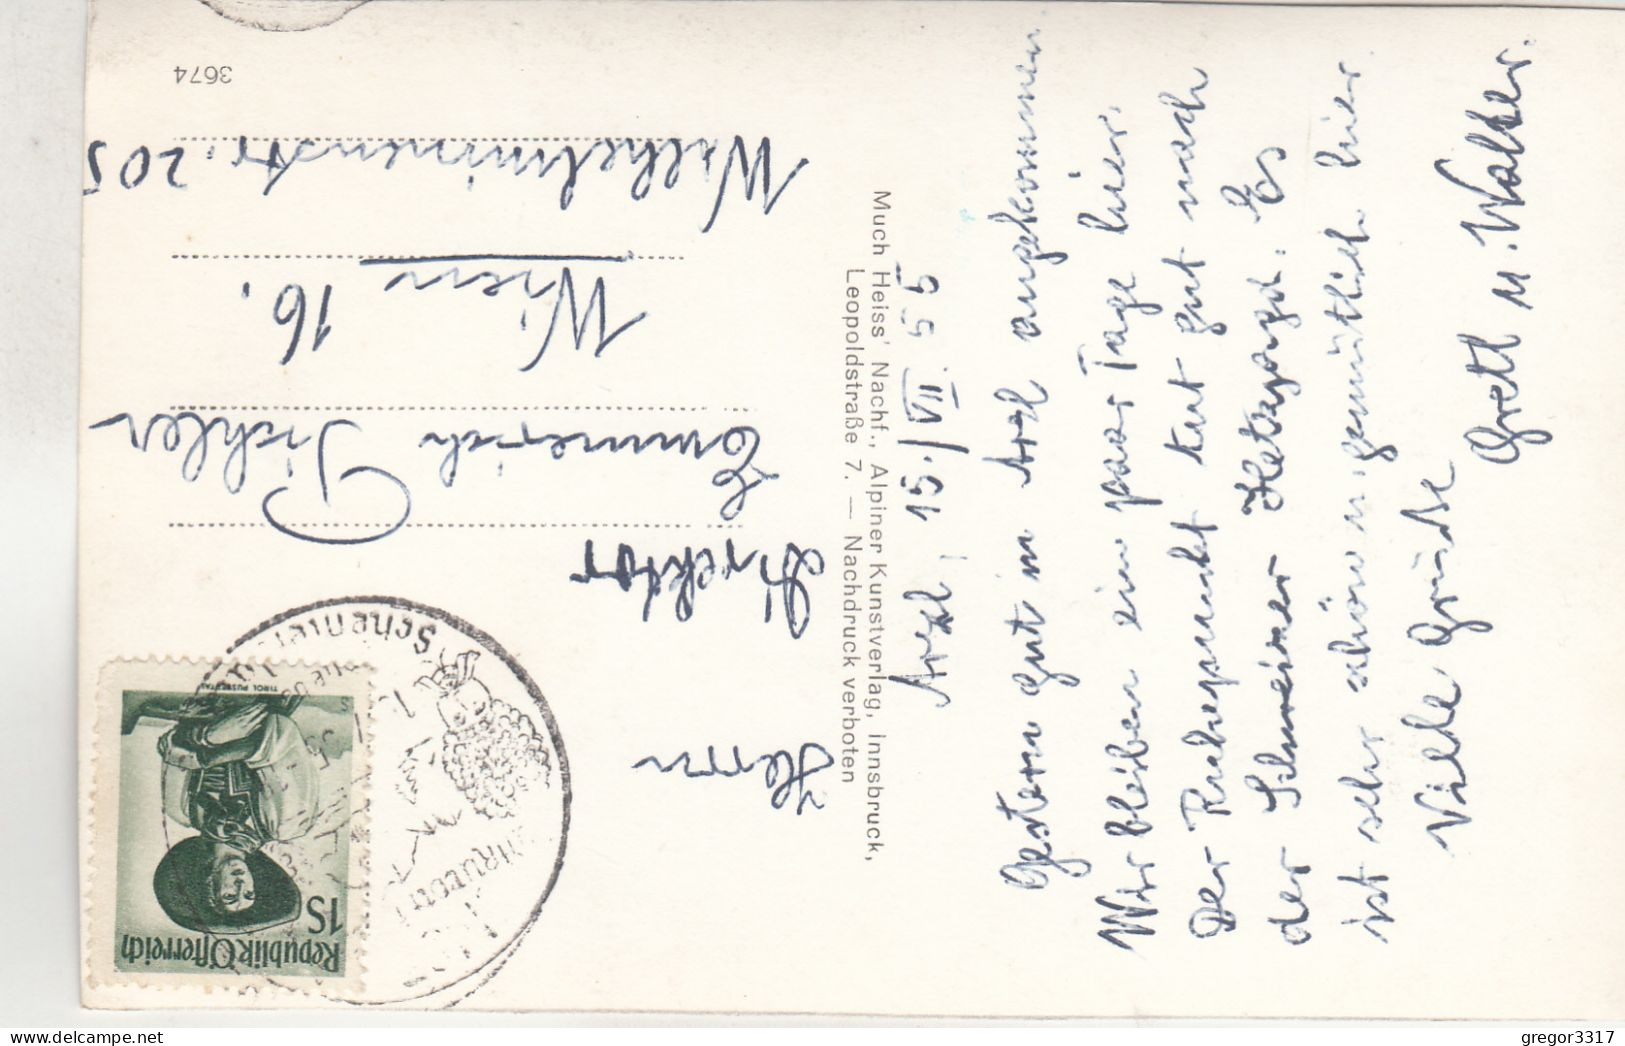 Arzl, 15./VII. 55
Gestern gut in Arzl angekommen
Wir bleiben ein paar Tage hier.
Der Rehepunkt tut gut nach
der Schweiner Hetzjagd. Es
ist sehr schön u. gemütlich hier
Viele Grüße
Gretl u. Walter.
Much Heiss' Nachf., Alpiner Kunstverlag, Innsbruck,
Leopoldstraße 7. — Nachdruck verboten
Herrn
Direktor
Emmerich Pichler
Wien 16.
Wilhelminenstr. 205
3674
Republik Österreich
1S
TIROL PUSTERTAL
gregor3317